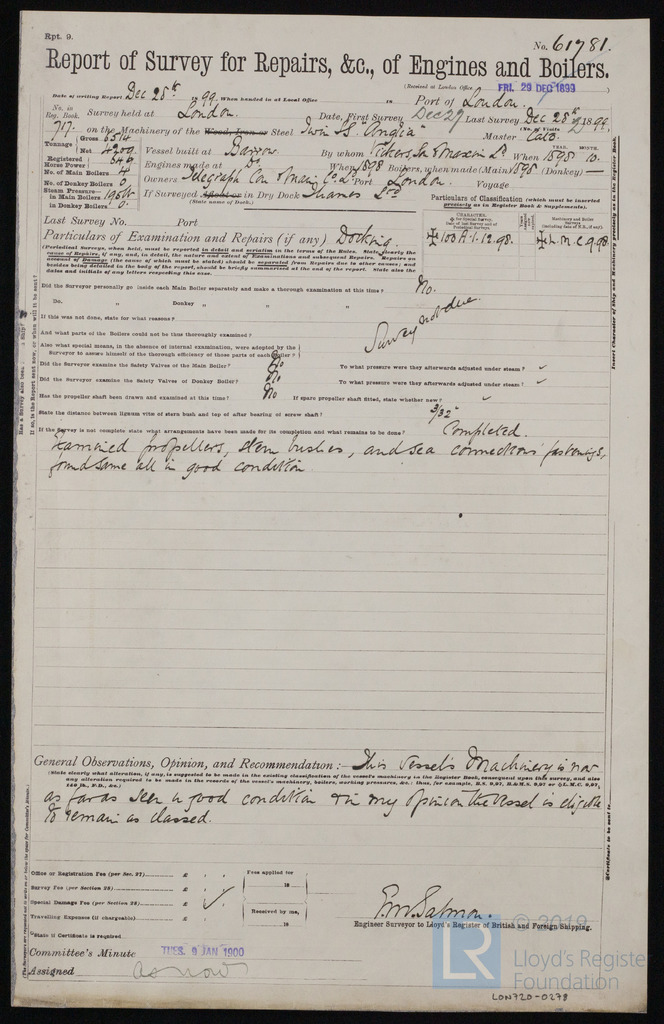 Rpt. 9.
No. 61781.
Report of Survey for Repairs, &c., of Engines and Boilers.
(Received at London Office FRI. 29 DEC 1899)
Date of writing Report Dec 28th 1899, When handed in at Local Office 18 Port of London.
No. in Reg. Book. Survey held at London. Date, First Survey Dec 27 Last Survey Dec 28th 1899
717. on the Machinery of the Wood, Iron or Steel Twin S.S. "Anglia" Master (No. of Visits 2)
Tonnage Gross 6514 Net 4209 Vessel built at Barrow. By whom Vickers, Son & Maxim Ld. When 1898 YEAR. MONTH. 10.
Registered Horse Power 546 Engines made at Do. When 1898 Boilers, when made (Main) 1898 (Donkey) —
No. of Main Boilers 4 Owners Telegraph Con & Main Co. Ld. Port London. Voyage
No. of Donkey Boilers 0
Steam Pressure in Main Boilers If Surveyed Afloat or in Dry Dock Thames
in Donkey Boilers 0. (State name of Dock.)
Particulars of Classification (which must be inserted precisely as in Register Book & Supplements).
Last Survey No. Port
Particulars of Examination and Repairs (if any) Docking.
✠100A.1.12.98. ✠L.M.C 9.98
(Periodical Surveys, when held, must be reported in detail and seriatim in the terms of the Rules. State clearly the cause of Repairs, if any, and, in detail, the nature and extent of Examinations and subsequent Repairs. Repairs on account of Damage (the cause of which must be stated) should be separated from Repairs due to other causes; and besides being detailed in the body of the report, should be briefly summarised at the end of the report. State also the dates and initials of any letters respecting this case.
Did the Surveyor personally go inside each Main Boiler separately and make a thorough examination at this time? No.
Do. " Donkey " " " "
If this was not done, state for what reasons? Survey not due.
And what parts of the Boilers could not be thus thoroughly examined?
Also what special means, in the absence of internal examination, were adopted by the
Surveyor to assure himself of the thorough efficiency of those parts of each Boiler?
Did the Surveyor examine the Safety Valves of the Main Boiler? No To what pressure were they afterwards adjusted under steam?
Did the Surveyor examine the Safety Valves of Donkey Boiler? No To what pressure were they afterwards adjusted under steam?
Has the propeller shaft been drawn and examined at this time? No If spare propeller shaft fitted, state whether new?
State the distance between lignum vitæ of stern bush and top of after bearing of screw shaft? 3/32"
If the Survey is not complete state what arrangements have been made for its completion and what remains to be done? Completed.
Examined propellers, stern bushes, and sea connections fastenings,
found same all in good condition
General Observations, Opinion, and Recommendation:— This Vessel's Machinery is now
(State clearly what alteration, if any, is suggested to be made in the existing classification of the vessel's machinery in the Register Book, consequent upon this survey, and also any alteration required to be made in the records of the vessel's machinery, boilers, working pressures, &c.: thus, for example, B.S. 9,97, B.&M.S. 9,97 or ✠L.M.C. 9,97,
140 lb., F.D., &c.)
as far as seen in good condition & in my opinion the Vessel is eligible
to remain as classed.
Office or Registration Fee (per Sec. 27) £ : :
Survey Fee (per Section 28) £ : :
Special Damage Fee (per Section 28) £ : :
Travelling Expenses (if chargeable) £ : :
Fees applied for 18
Received by me, 18
State if Certificate is required
E.W. Salmon.
Engineer Surveyor to Lloyd's Register of British and Foreign Shipping.
Committee's Minute TUES. 9 JAN 1900
Assigned as now
© 2019
LR
Lloyd's Register
Foundation
LON720-0278